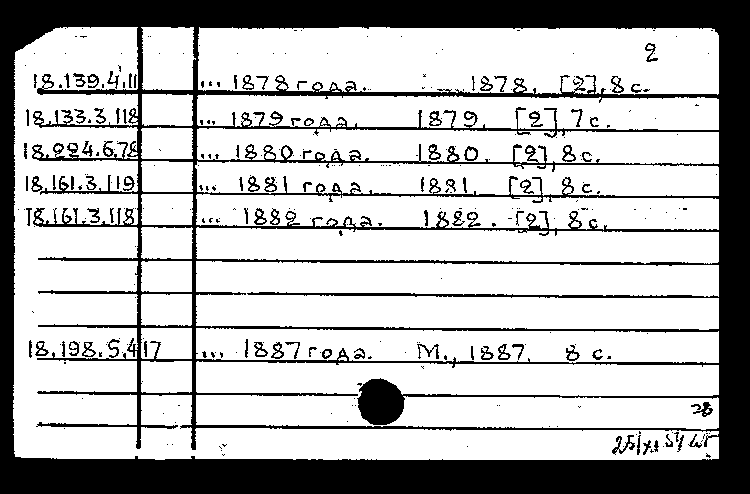 2
18.139.4.11 ... 1878 года. 1878. [2], 8 с.
18.133.3.118 ... 1879 года. 1879. [2], 7 с.
18.224.6.78 ... 1880 года. 1880. [2], 8 с.
18.161.3.119 ... 1881 года. 1881. [2], 8 с.
18.161.3.118 ... 1882 года. 1882. [2], 8 с.
18.198.5.417 ... 1887 года. М., 1887. 8 с.
28
25/XI 54